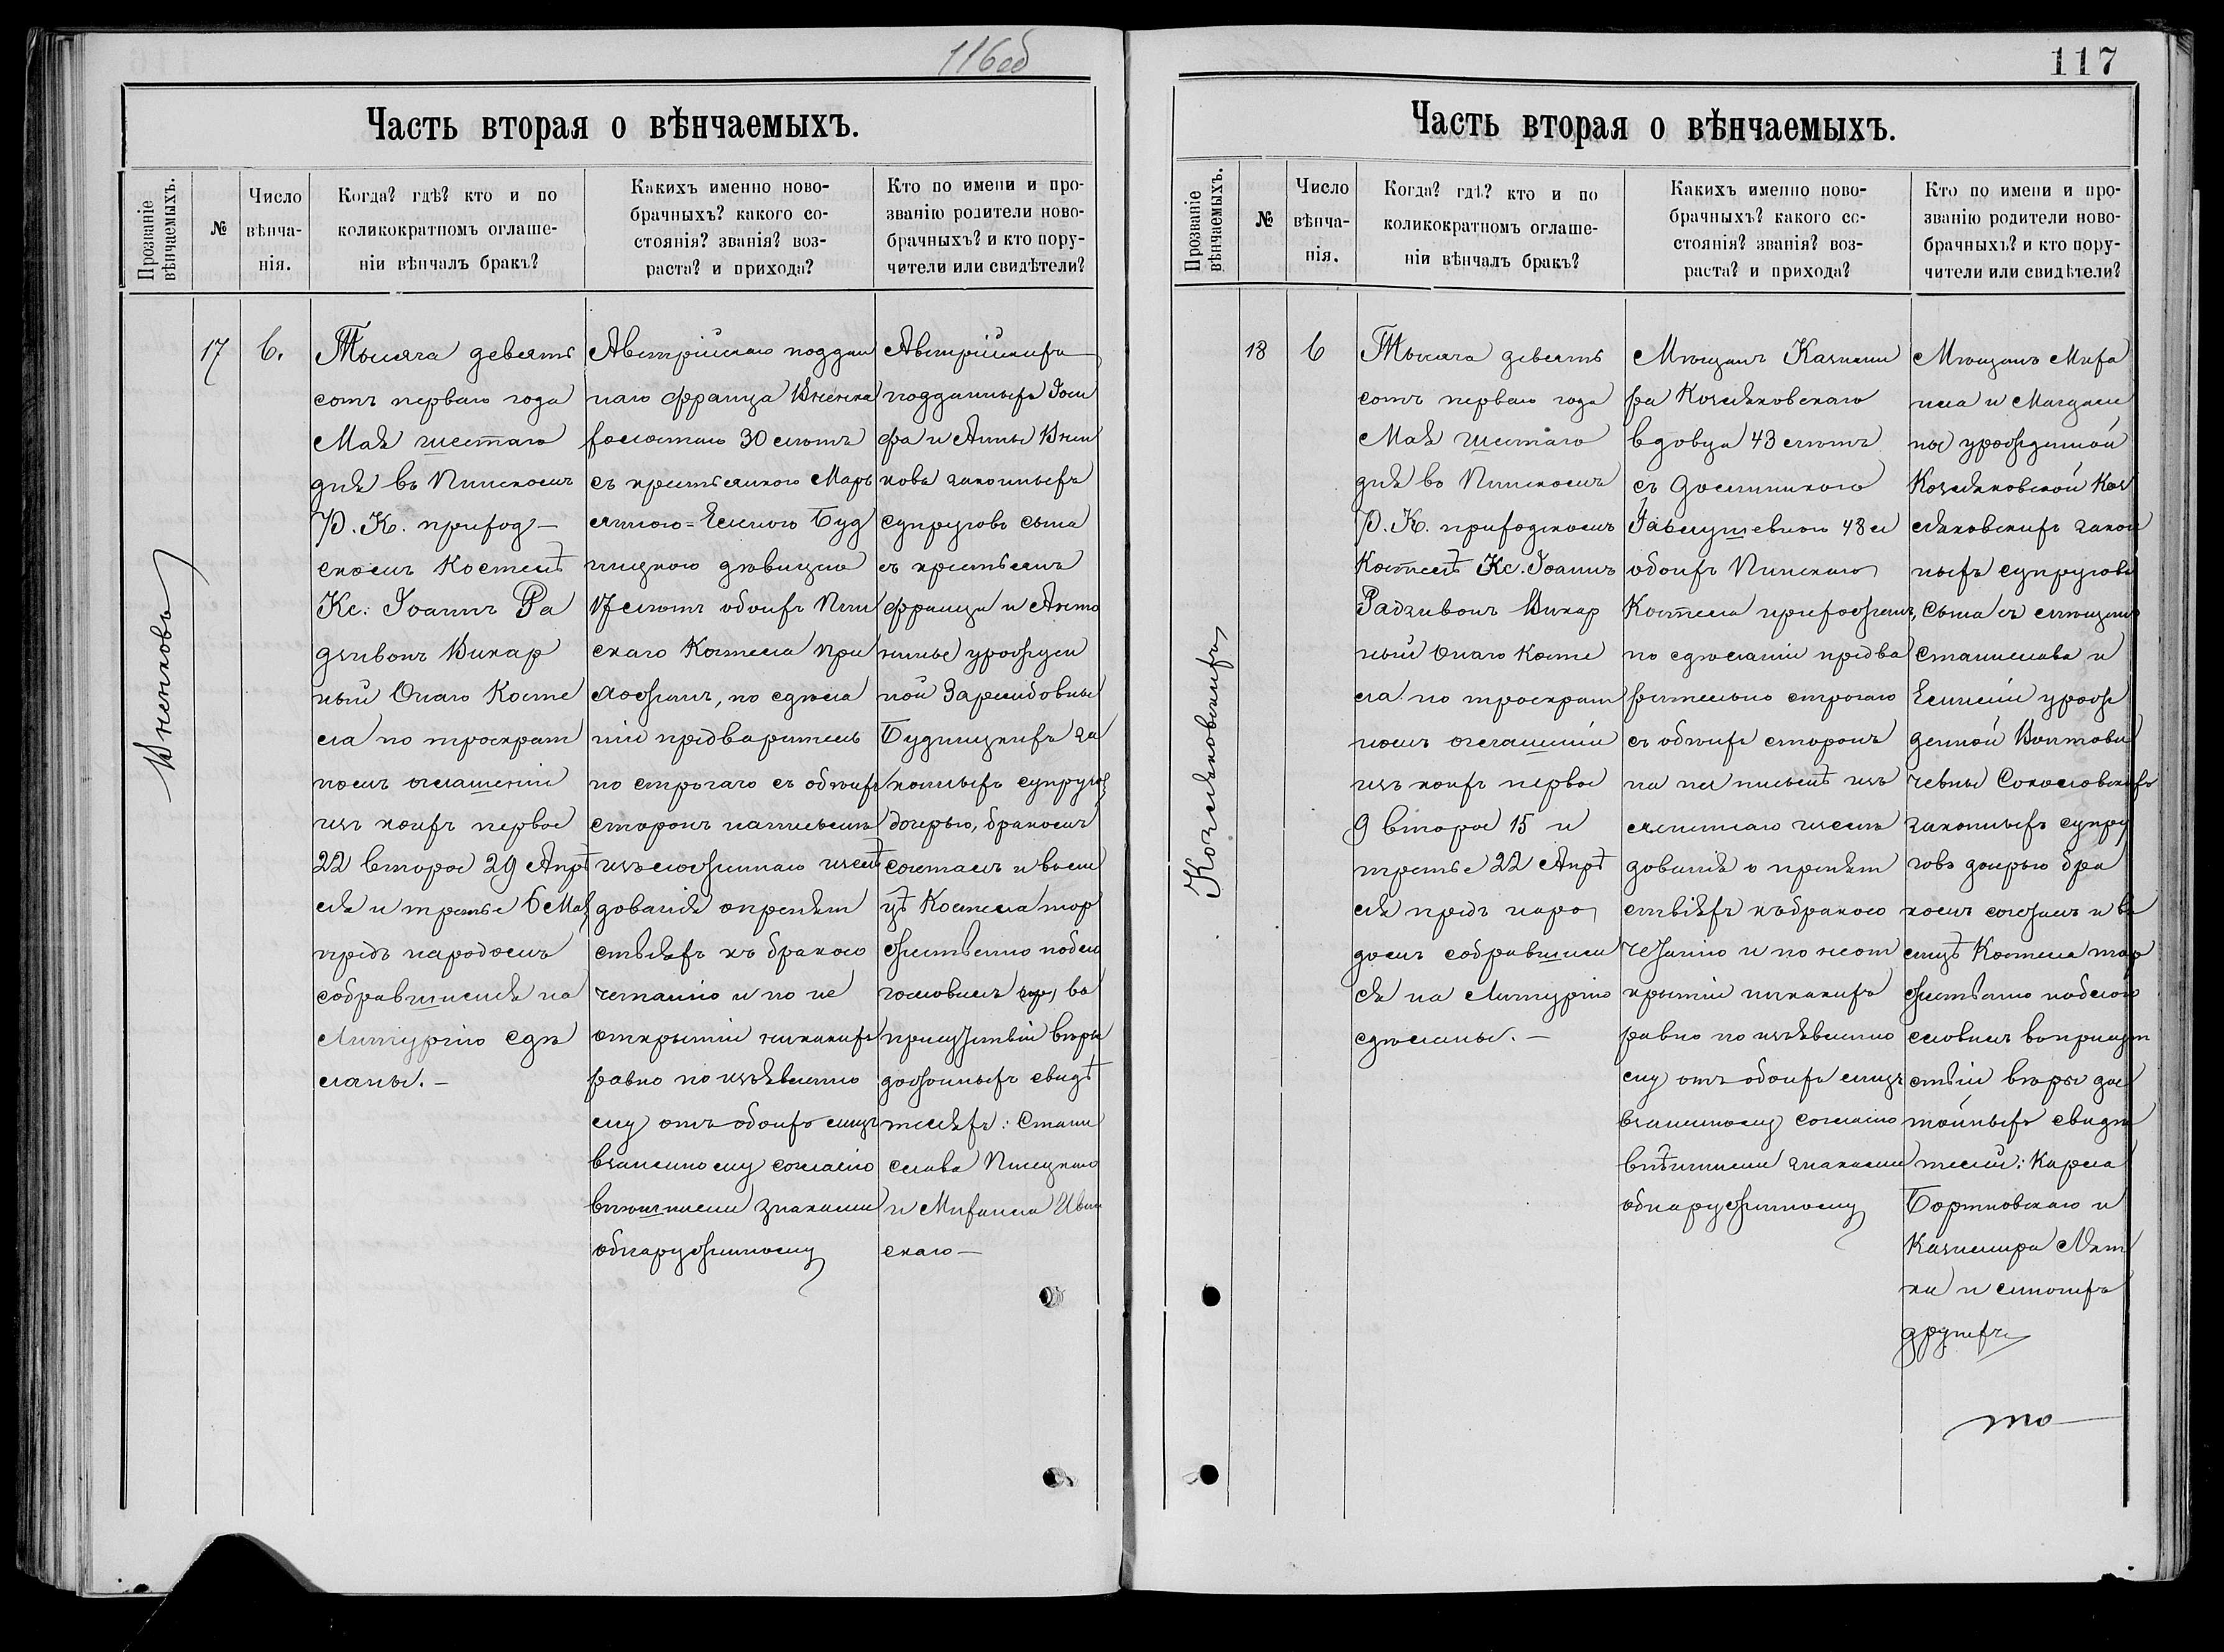 116об
Часть вторая о вѣнчаемыхъ.
Прозваніе вѣнчаемыхъ.
№
Число вѣнча-нія.
Когда? гдѣ? кто и по
коликократномъ оглаше-
ніи вѣнчалъ бракъ?
Какихъ именно ново-
брачныхъ? какого со-
стоянія? званія? воз-
раста? и прихода?
Кто по имени и про-
званію родители ново-
брачныхъ? и кто пору-
чители или свидѣтели?
17
6.
Тысяча девять
сотъ перваго года
Мая шестаго
дня въ Пинскомъ
Р. К. приход-
скомъ Костелѣ
Кс. Іоаннъ Ра
дзивонъ Викар
ный Онаго Косте
ла по троекрат
номъ оглашеніи
изъ коихъ первое
22 второе 29 Апрѣ
ля и третье 6 Мая
предъ народомъ
собравшимся на
Литургію сдѣ
ланы. -
Австрійскаго поддан
наго Франца
холостаго 30 лѣтъ
съ крестьянкою Марь
янною=Еленою Буд
ницкою дѣвицею
17 лѣтъ обоихъ Пин
скаго Костела при
хожанъ, по сдѣла
ніи предваритель
но строгаго съ обоихъ
сторонъ на письмѣ
изъложеннаго изслѣ
дованія о препят
ствіяхъ къ браком
четанію и по не
открытіи никакихъ
равно по изъявленно
му отъ обоихъ лицъ
взаимному согласію
внѣшними знаками
обнаруженному
Австрійскихъ
подданныхъ Іоси
фа и Анны
законныхъ
супруговъ сына
съ крестьянъ
Франца и Анто
нины урожден
ной
Будницкихъ за
конныхъ супруговъ
дочерью, бракомъ
сочеталъ и въ ли
цѣ Костела тор
жественно побла
гословилъ въ
присутствіи вѣры
достойныхъ свидѣ
телей: Стани
слава Пилецкаго
и Михаила
скаго-
117
Часть вторая о вѣнчаемыхъ.
Прозваніе вѣнчаемыхъ.
№
Число вѣнча-нія.
Когда? гдѣ? кто и по
коликократномъ оглаше-
ніи вѣнчалъ бракъ?
Какихъ именно ново-
брачныхъ? какого со-
стоянія? званія? воз-
раста? и прихода?
Кто по имени и про-
званію родители ново-
брачныхъ? и кто пору-
чители или свидѣтели?
Козляковскихъ
18
6
Тысяча девять
сотъ перваго года
Мая шестаго
дня во Пинскомъ
Р. К. приходскомъ
Костелѣ Кс. Іоаннъ
Радзивонъ Викар
ный Онаго Косте
ла по троекрат
номъ оглашеніи
изъ коихъ первое
9 второе 15 и
третье 22 Апрѣ
ля предъ наро
домъ собравшим
ся на Литургію
сдѣланы. -
Мѣщанъ Казими
ра Козляковскаго
вдовца 43 лѣтъ
съ Доминикою
48 л
обоихъ Пинскаго
Костела прихожанъ,
по сдѣланіи предва
рительно строгаго
съ обоихъ сторонъ
на письмѣ изъ
ложеннаго изслѣ
дованія о препят
ствіяхъ къ браком
четанію и по неот
крытіи никакихъ
равно по изъявленно
му отъ обоихъ лицъ
взаимному согласію
внѣшними знаками
обнаруженному
Мѣщанъ Миха
ила и Магдале
ны урожденной
Козляковской Коз
ляковскихъ закон
ныхъ супруговъ
сына съ мѣщанъ
Станислава и
Емиліи урож
денной Войтове
чевны Соколовскихъ
законныхъ супру
говъ дочерью бра
комъ сочеталъ и въ
лицѣ Костела тор
жественно поблаго
словилъ въ присут
ствіи вѣры дос
тойныхъ свидѣ
телей: Карла
Бортновскаго и
Казимира
ки и иногихъ
другихъ